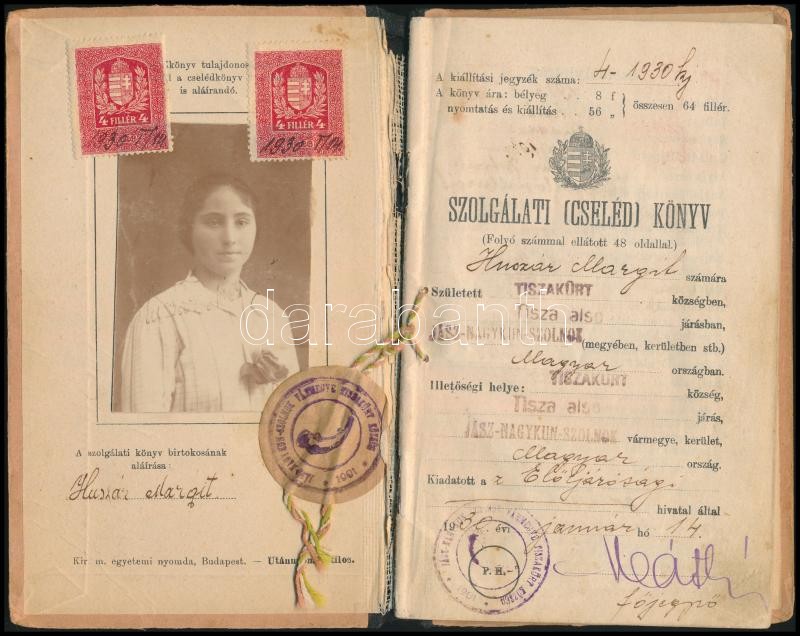 könyv tulajdonos
l a cselédkönyv
is aláírandó.
4 FILLÉR 4
4 FILLÉR 4
1930 I/14
1930 I/14
A szolgálati könyv birtokosának
aláírása:
Huszár Margit
Kir. m. egyetemi nyomda, Budapest. — Utánn tilos.
JÁSZ-NAGYKUN-SZOLNOK VÁRMEGYE TISZAKÜRT KÖZSÉG
1901
A kiállítási jegyzék száma: 4-1930 kj
A könyv ára: bélyeg . . 8 f
nyomtatás és kiállítás . . 56 „ } összesen 64 fillér.
SZOLGÁLATI (CSELÉD) KÖNYV
(Folyó számmal ellátott 48 oldallal.)
Huszár Margit számára
Született TISZAKÜRT községben,
Tisza alsó járásban,
JÁSZ-NAGYKUN-SZOLNOK (megyében, kerületben stb.)
Magyar országban.
Illetőségi helye: TISZAKÜRT község,
Tisza alsó járás,
JÁSZ-NAGYKUN-SZOLNOK vármegye, kerület,
Magyar ország.
Kiadatott a z Elöljárósági
hivatal által
1930. évi január hó 14.
P. H.
főjegyző
darabanth